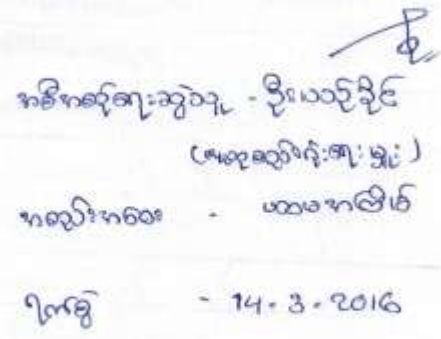 အစီအစဉ်ရေးဆွဲသူ - ဦးယဉ်ခိုင်
ရုံး
အစည်းအဝေး - ပထမအကြိမ်
ရက်စွဲ - 14-3-2016